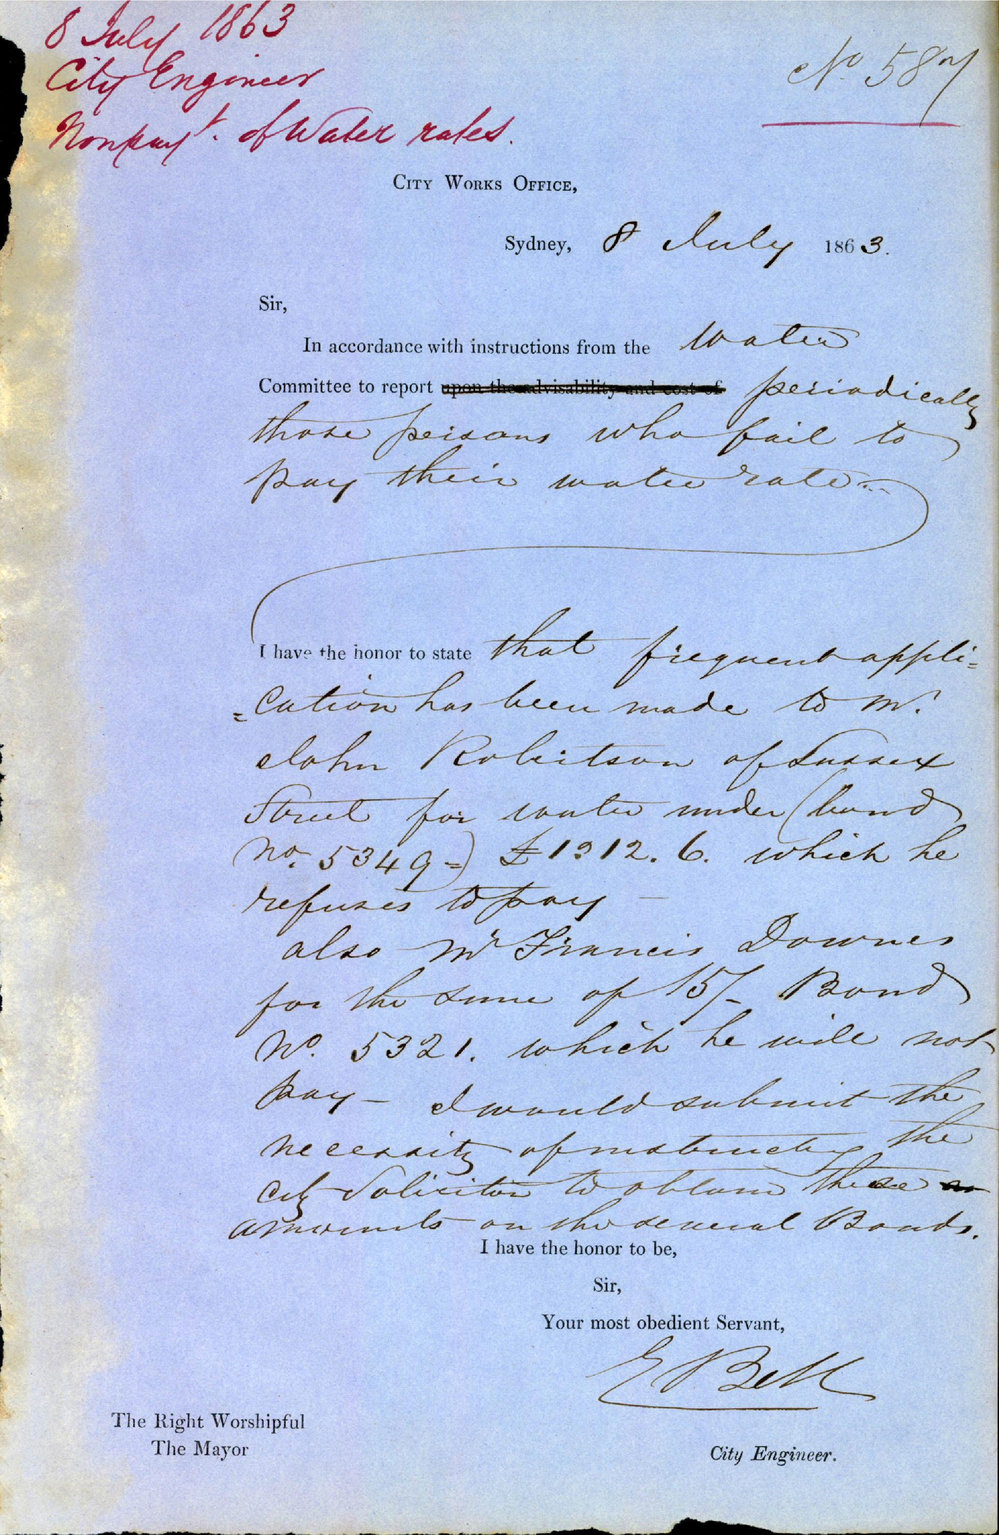 8 July 1863
City Engineer
Nonpayt. of Water rates.
No 587
City Works Office,
Sydney, 8 July 1863.
Sir,
In accordance with instructions from the Water
Committee to report upon the advisability and cost of periodically
those persons who fail to
pay their water rate
I have the honor to state that frequent appli=
=cation has been made to Mr.
John Robertson of Sussex
Street for water under (bond
No. 5349=) which he
refuses to pay —
also Mr Francis Downes
for the sume of 15/- Bond
No. 5321. which he will not
pay — I would submit the
necessity of instructing the
City Solicitor to obtain these
amounts on the several Bonds.
I have the honor to be,
Sir,
Your most obedient Servant,
E Bell
The Right Worshipful
The Mayor
City Engineer.